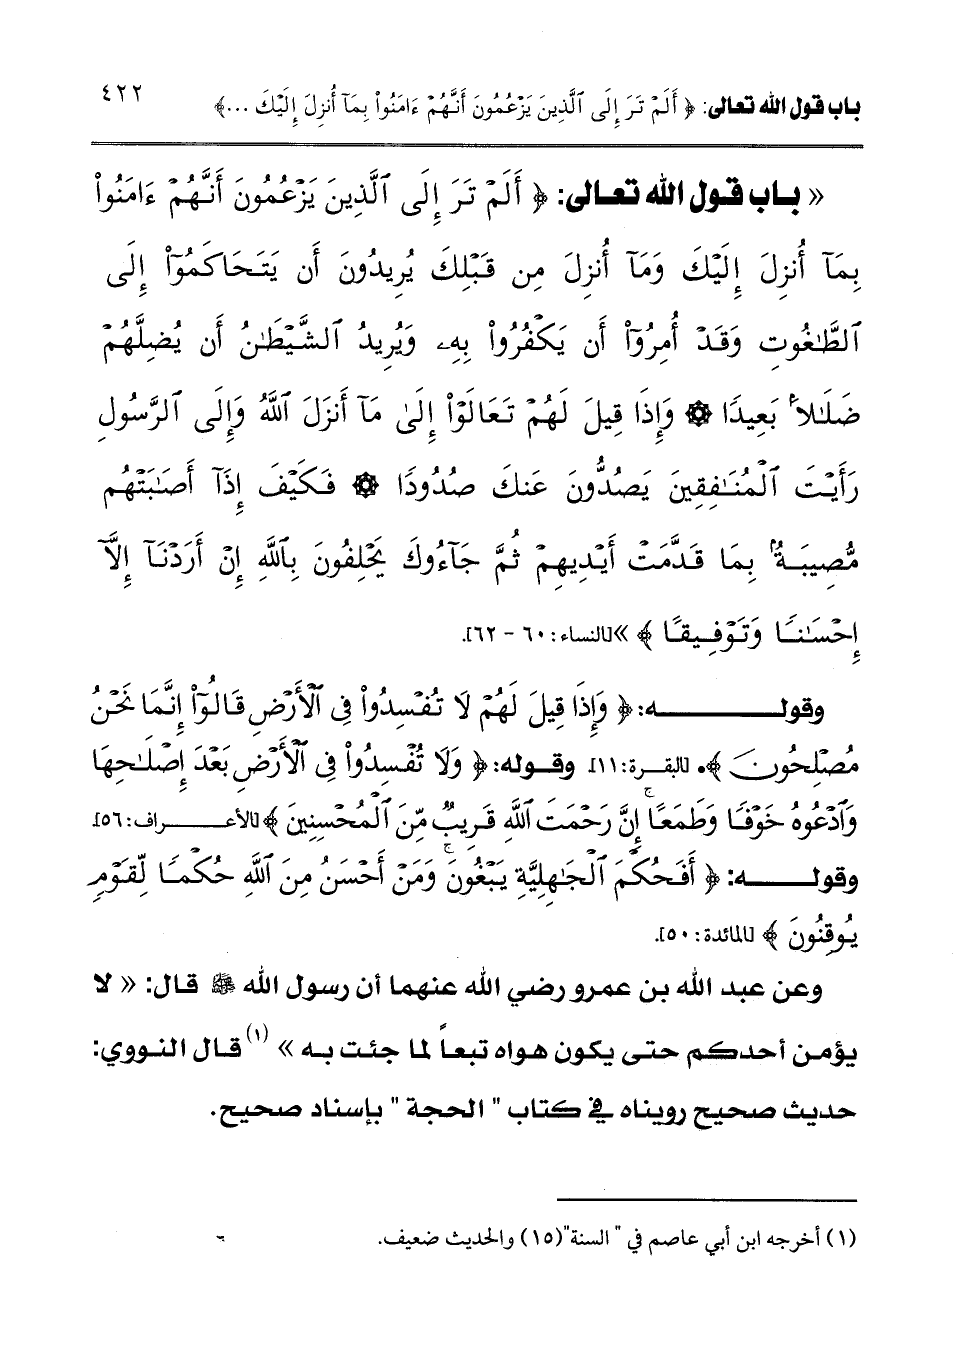 باب قول الله تعالى: ﴿ أَلَمْ تَرَ إِلَى ٱلَّذِينَ يَزْعُمُونَ أَنَّهُمْ ءَامَنُوا۟ بِمَآ أُنزِلَ إِلَيْكَ ...﴾ ٤٢٢
« باب قول الله تعالى: ﴿ أَلَمْ تَرَ إِلَى ٱلَّذِينَ يَزْعُمُونَ أَنَّهُمْ ءَامَنُوا۟
بِمَآ أُنزِلَ إِلَيْكَ وَمَآ أُنزِلَ مِن قَبْلِكَ يُرِيدُونَ أَن يَتَحَاكَمُوٓا۟ إِلَى
ٱلطَّـٰغُوتِ وَقَدْ أُمِرُوٓا۟ أَن يَكْفُرُوا۟ بِهِۦ وَيُرِيدُ ٱلشَّيْطَـٰنُ أَن يُضِلَّهُمْ
ضَلَـٰلًۢا بَعِيدًا ۞ وَإِذَا قِيلَ لَهُمْ تَعَالَوْا۟ إِلَىٰ مَآ أَنزَلَ ٱللَّهُ وَإِلَى ٱلرَّسُولِ
رَأَيْتَ ٱلْمُنَـٰفِقِينَ يَصُدُّونَ عَنكَ صُدُودًا ۞ فَكَيْفَ إِذَآ أَصَـٰبَتْهُم
مُّصِيبَةٌۢ بِمَا قَدَّمَتْ أَيْدِيهِمْ ثُمَّ جَآءُوكَ يَحْلِفُونَ بِٱللَّهِ إِنْ أَرَدْنَآ إِلَّآ
إِحْسَـٰنًا وَتَوْفِيقًا ﴾ »[النساء: ٦٠ - ٦٢].
وقولـــه: ﴿ وَإِذَا قِيلَ لَهُمْ لَا تُفْسِدُوا۟ فِى ٱلْأَرْضِ قَالُوٓا۟ إِنَّمَا نَحْنُ
مُصْلِحُونَ ﴾. [البقـرة: ١١] وقـوله: ﴿ وَلَا تُفْسِدُوا۟ فِى ٱلْأَرْضِ بَعْدَ إِصْلَـٰحِهَا
وَٱدْعُوهُ خَوْفًا وَطَمَعًا ۚ إِنَّ رَحْمَتَ ٱللَّهِ قَرِيبٌ مِّنَ ٱلْمُحْسِنِينَ ﴾ [الأعـراف: ٥٦]
وقولـــه: ﴿ أَفَحُكْمَ ٱلْجَـٰهِلِيَّةِ يَبْغُونَ ۚ وَمَنْ أَحْسَنُ مِنَ ٱللَّهِ حُكْمًا لِّقَوْمٍ
يُوقِنُونَ ﴾ [المائدة: ٥٠].
وعن عبد الله بن عمرو رضي الله عنهما أن رسول الله ﷺ قال: « لا
يؤمن أحدكم حتى يكون هواه تبعاً لما جئت به » (١) قال النووي:
حديث صحيح رويناه في كتاب " الحجة " بإسناد صحيح.
(١) أخرجه ابن أبي عاصم في " السنة"(١٥) والحديث ضعيف.